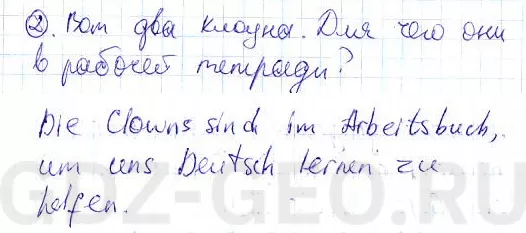 ②. Вот два клоуна. Для чего они
в рабочей тетради?
Die Clowns sind im Arbeitsbuch,
um uns Deutsch lernen zu
helfen.
GDZ-GEO.RU